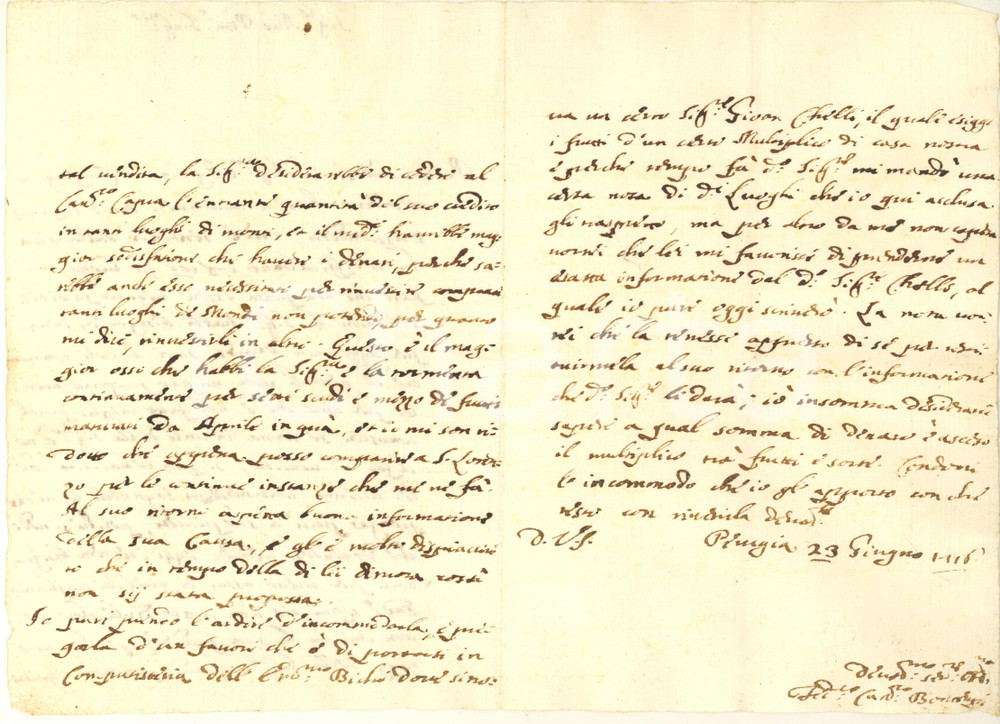 tal vendita, la Sig.ra desiderarebbe di cedere al
Cav.ro Capua l'entrante quantità del suo credito
in tanti luoghi di monti, et il med.o haurebbe mag-
gior sodisfatione che hauere i denari, perche sa-
rebbe anch'esso necessitato per rinuestire comprare
tanti luoghi de Monti non potendo, per quanto
mi dice, rinuestirli in altro. Questo è il mag-
gior osso che habbi la Sig.ra, e la tormenta
continuamente per sei scudi e mezzo de frutti
maturati da Aprile in quà, et io mi son ri-
dotto che appena posso comparire a S. Loren-
zo per le continue instanze che me ne fà.
Al suo ritorno aspetta buone informatione
della sua Causa, e gli è molto dispiaciuto
che in tempo della di lei dimora costì
non sij stata proposta.
Io puri prendo l'ardire d'incommodarla, e pre-
garla d'un fauore che è di portarsi in
Computisteria dell' Bichi doue si tro-
ua un certo Sig.re Giovan Chelli, il quale esigge
i frutti d'un certo Multiplico di casa nostra
e perche tempo fà d.o Sig.re mi mandò una
certa nota di d.i Luoghi che io qui acclusa
gli trasmetto, ma per altro da me non capita
uorrei che lei mi fauorisse di prenderne un
esatta informatione dal d.o Sig.re Chelli, al
quale io pure oggi scriuerò. La nota uor-
rei che la tenesse appresso di sè per resti-
tuirmela al suo ritorno con l'informatione
che d.o Sig.re le darà; io insomma desiderarei
sapere a qual somma di denaro è asceso
il multiplico trà frutti e sorte. Condoni
l'incommodo che io gli apporto con che
resto con riuerirla deuot.te
D. V.S. Perugia 23 Giugno 1716
Deuot.mo